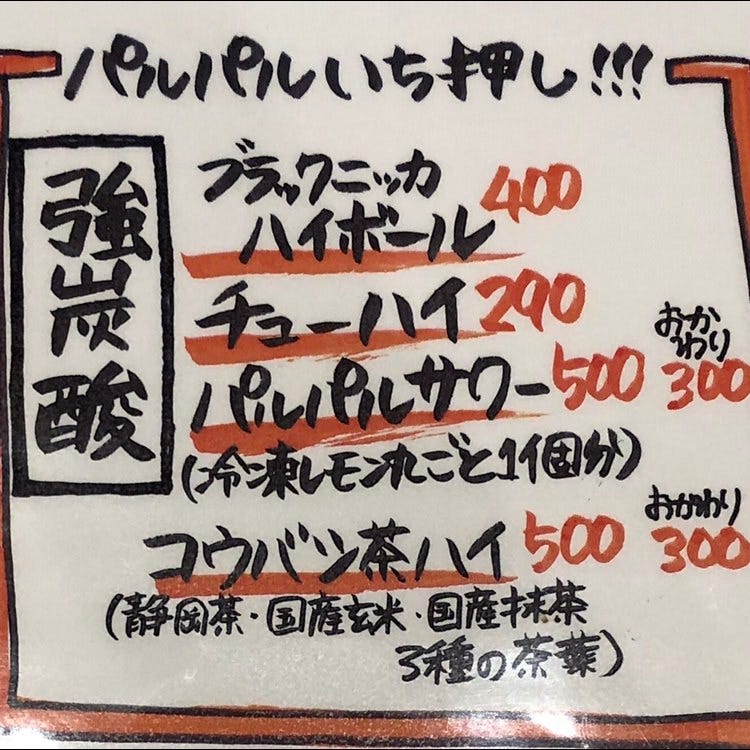 パルパルいち押し!!!
強炭酸
ブラックニッカ
ハイボール 400
チューハイ 290
パルパルサワー 500 おかわり 300
(冷凍レモン丸ごと1個分)
コウバツ茶ハイ 500 おかわり 300
(静岡茶・国産玄米・国産抹茶
3種の茶葉)